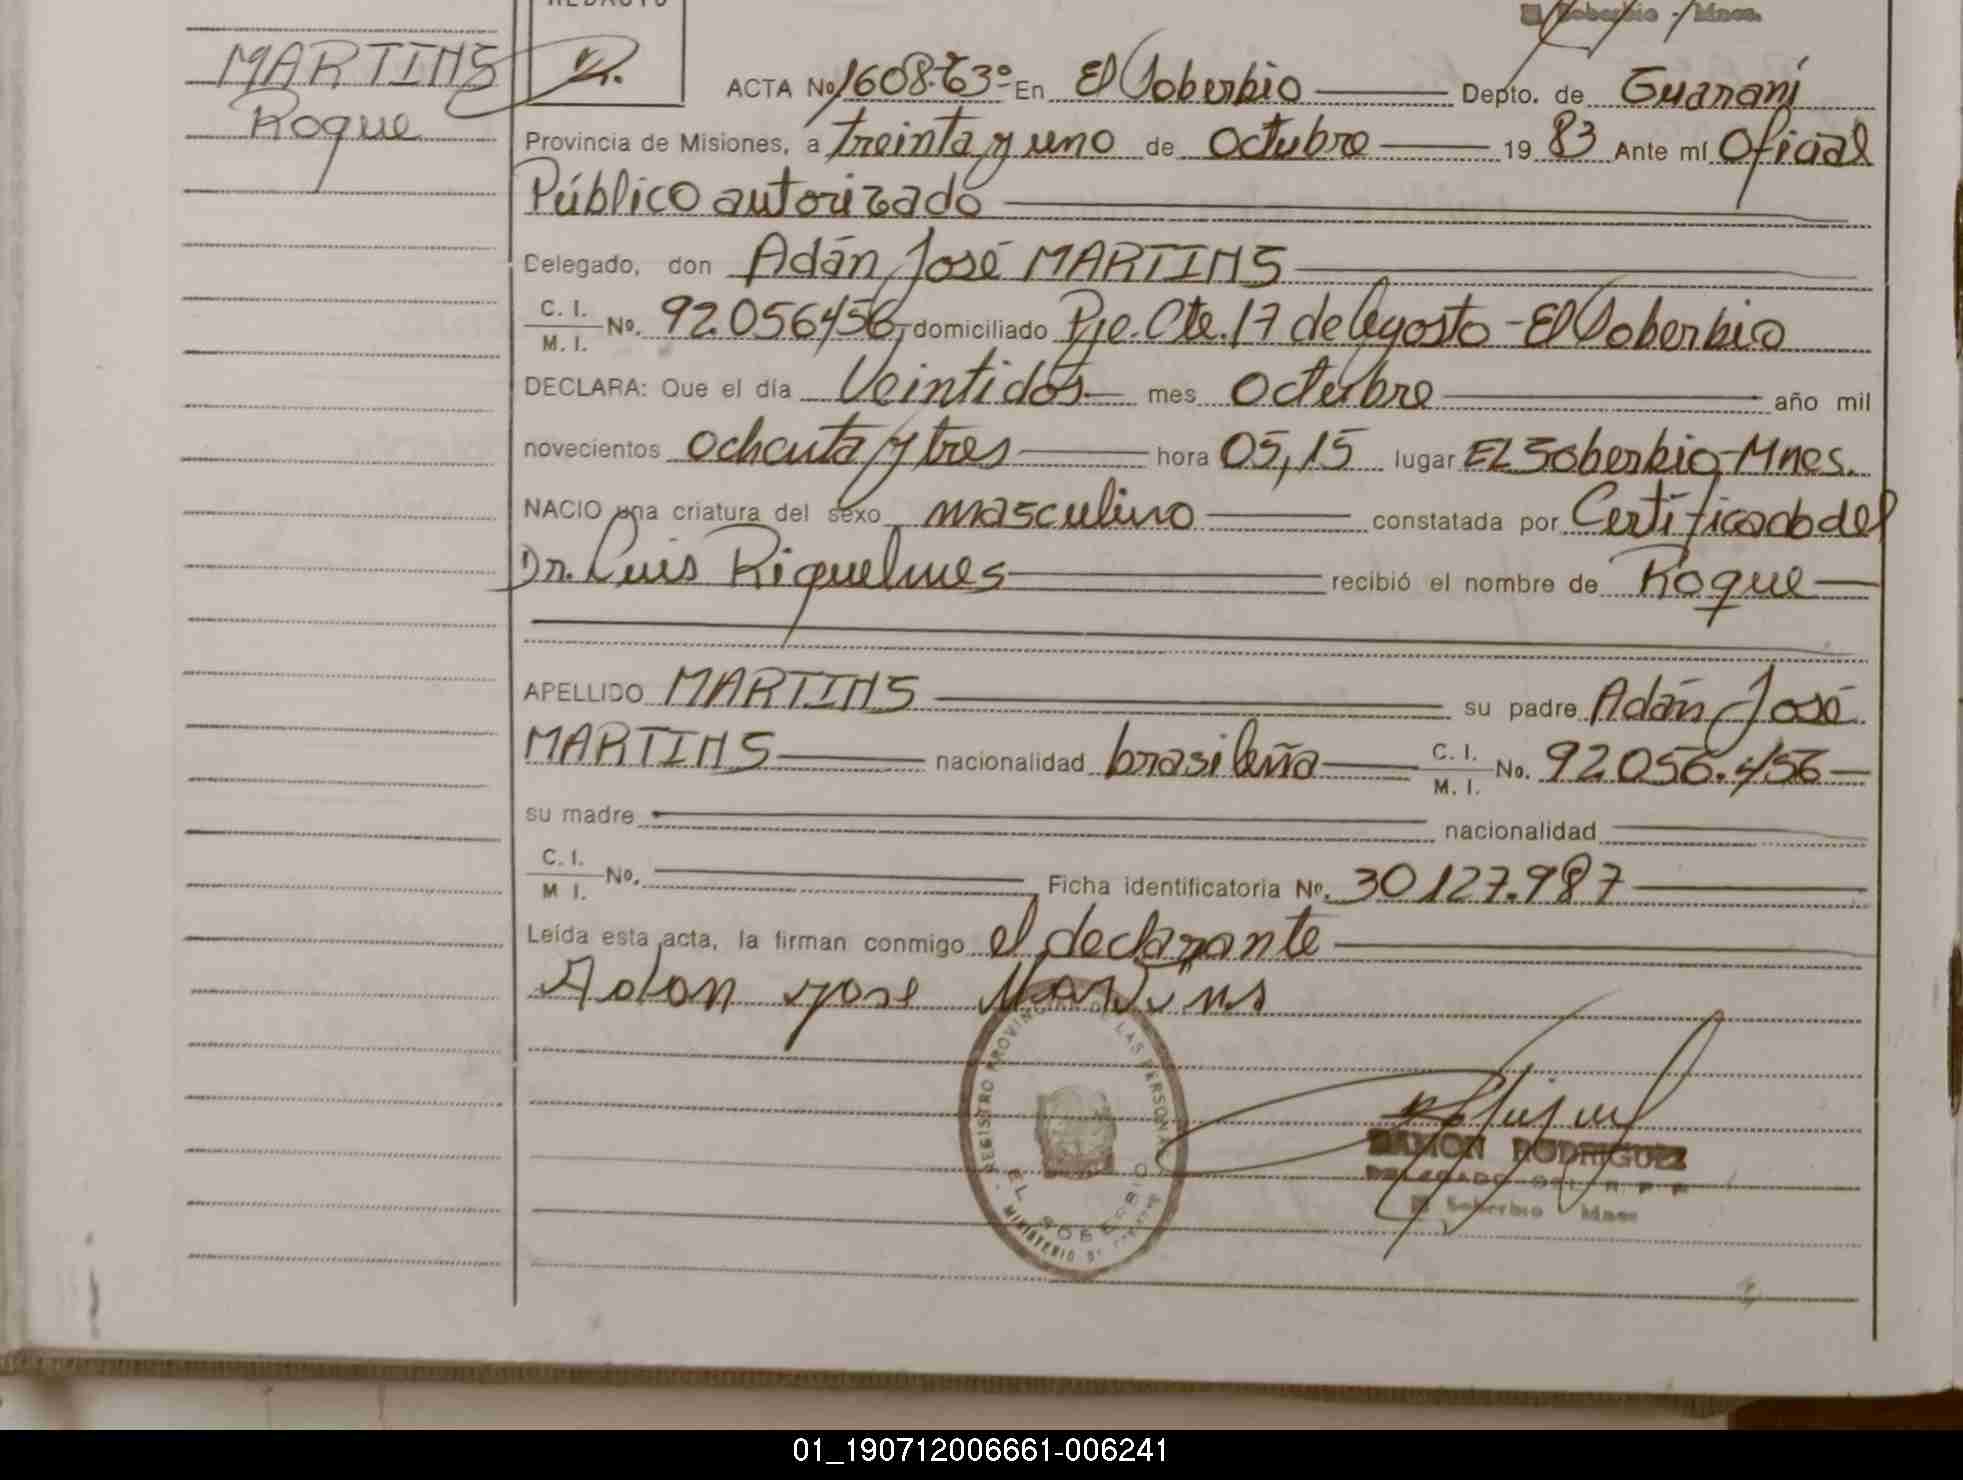 REDACTO
El Soberbio - Mnes.
MARTINS
Roque
ACTA No 1608-T3º En El Soberbio Depto. de Guaraní
Provincia de Misiones, a treinta y uno de Octubre 19 83 Ante mí Oficial
Público autorizado
Delegado, don Adán José MARTINS
C. I.
M. I. No. 92.056456, domiciliado Pje. Cte. 17 de Agosto - El Soberbio
DECLARA: Que el día Veintidos mes Octubre año mil
novecientos ochenta y tres hora 05,15 lugar EL Soberbio - Mnes.
NACIO una criatura del sexo masculino constatada por Certificado del
Dr. Luis Riquelmes recibió el nombre de Roque
APELLIDO MARTINS su padre Adán José
MARTINS nacionalidad brasileña C. I.
M. I. No. 92.056.456
su madre nacionalidad
C. I.
M I. No. Ficha identificatoria No. 30127.987
Leída esta acta, la firman conmigo el declarante
Adan Jose Martins
REGISTRO PROVINCIAL DE LAS PERSONAS
EL SOBERBIO
MINISTERIO DE
RAMON RODRIGUEZ
DELEGADO DEL R P P
El Soberbio Mnes
01_190712006661-006241